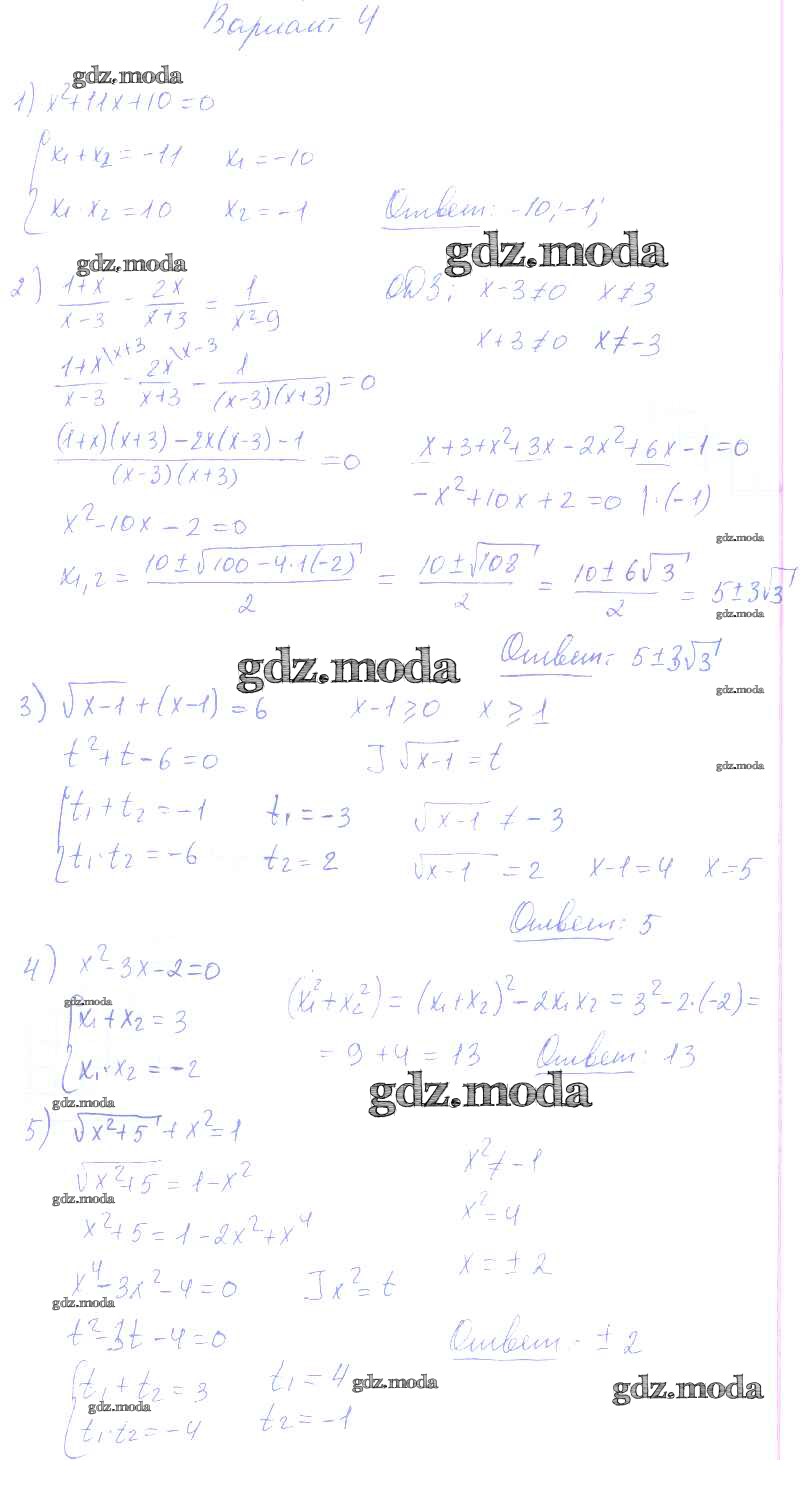 Вариант 4
gdz.moda
1) x²+11x+10=0
x₁+x₂=-11 x₁=-10
x₁·x₂=10 x₂=-1 Ответ: -10; -1;
gdz.moda gdz.moda
2) (1+x)/(x-3) - 2x/(x+3) = 1/(x²-9) ОДЗ: x-3≠0 x≠3
x+3≠0 x≠-3
(1+x\x+3)/(x-3) - (2x\x-3)/(x+3) - 1/((x-3)(x+3)) =0
((1+x)(x+3)-2x(x-3)-1)/((x-3)(x+3)) =0 x+3+x²+3x-2x²+6x-1=0
-x²+10x+2=0 |·(-1)
x²-10x-2=0
gdz.moda
x₁,₂ = (10±√(100-4·1(-2)))/2 = (10±√108)/2 = (10±6√3)/2 = 5±3√3
gdz.moda
Ответ: 5±3√3
gdz.moda gdz.moda
3) √(x-1)+(x-1)=6 x-1⩾0 x⩾1
t²+t-6=0 ] √(x-1)=t
gdz.moda
t₁+t₂=-1 t₁=-3 √(x-1) ≠ -3
t₁·t₂=-6 t₂=2 √(x-1) =2 x-1=4 x=5
Ответ: 5
4) x²-3x-2=0
gdz.moda
x₁+x₂=3 (x₁²+x₂²)=(x₁+x₂)²-2x₁x₂=3²-2·(-2)=
x₁·x₂=-2 =9+4=13 Ответ: 13
gdz.moda gdz.moda
5) √(x²+5)+x²=1
√(x²+5)=1-x² x²≠-1
gdz.moda
x²+5=1-2x²+x⁴ x²=4
x⁴-3x²-4=0 ] x²=t x=±2
gdz.moda
t²-3t-4=0 Ответ: ±2
t₁+t₂=3 t₁=4 gdz.moda gdz.moda
gdz.moda
t₁·t₂=-4 t₂=-1